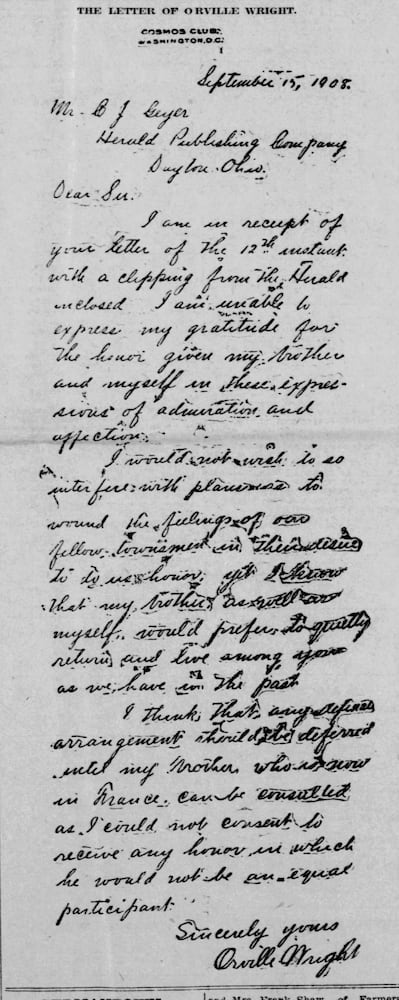 THE LETTER OF ORVILLE WRIGHT.
COSMOS CLUB,
WASHINGTON, D.C.
September 15, 1908.
Mr. C J Geyer
Herald Publishing Company
Dayton Ohio.
Dear Sir.
I am in receipt of
your letter of the 12th instant
with a clipping from the Herald
inclosed I am unable to
express my gratitude for
the honor given my brother
and myself in these expres-
sions of admiration and
affection.
I would not wish to so
interfere with plans as to
wound the feelings of our
fellow townsmen in their desire
to do us honor, yet I know
that my brother, as well as
myself, would prefer to quietly
return and live among you
as we have in the past
I think that any definite
arrangement should be deferred
until my brother, who is now
in France, can be consulted
as I could not consent to
receive any honor in which
he would not be an equal
participant
Sincerely yours
Orville Wright
and Mrs. Frank Shaw, of Farmers